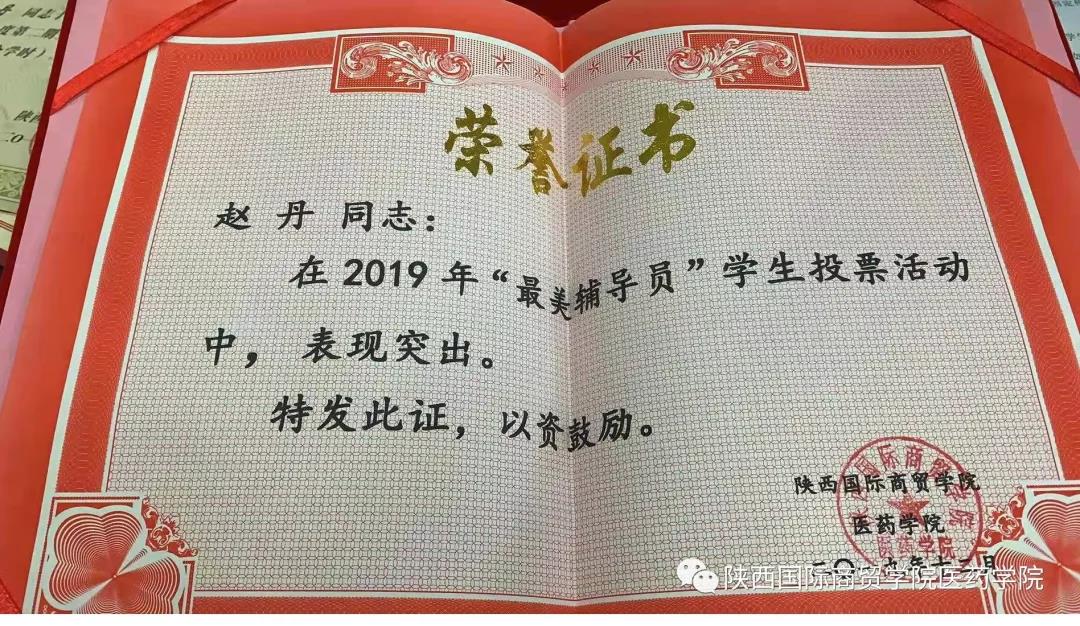 荣誉证书
赵 丹 同志：
在 2019 年“最美辅导员”学生投票活动
中， 表现突出。
特发此证，以资鼓励。
陕西国际商贸学院
医药学院
二〇一九年十二月
陕西国际商贸学院医药学院